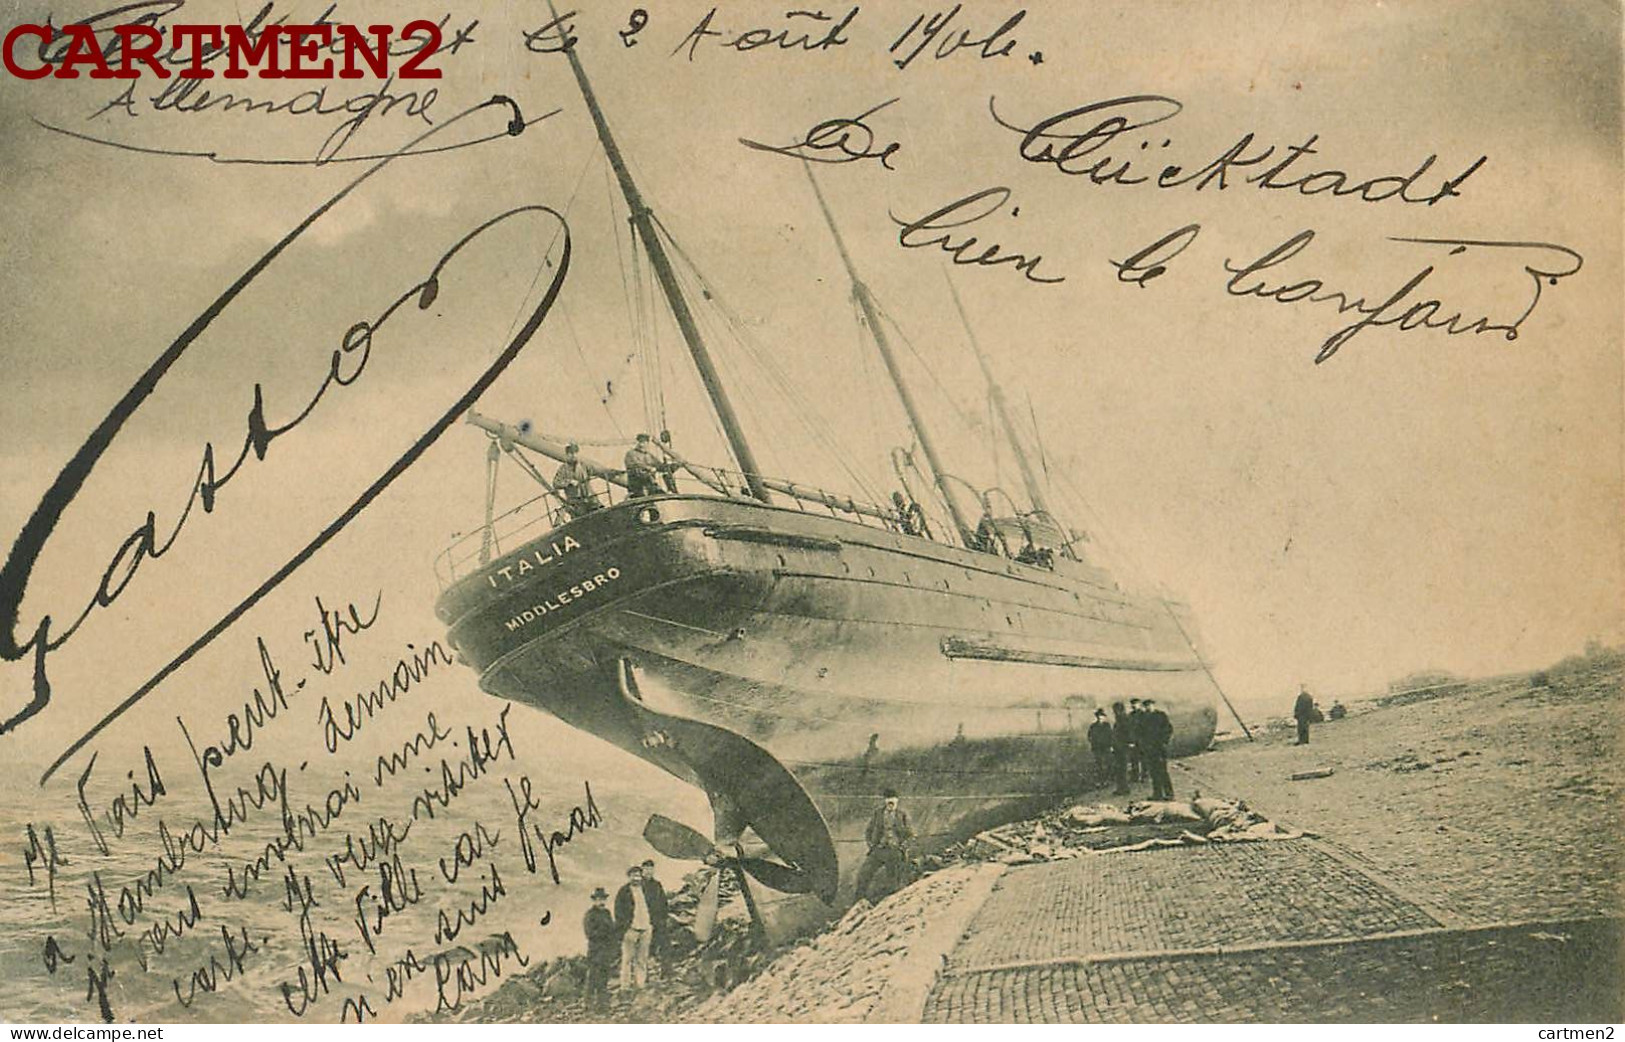 CARTMEN2
le 2 Août 1904.
Allemagne
De Glückstadt
bien le bonjour
Gaston
ITALIA
MIDDLESBRO
Je vais peut-être
a Hambourg. demain
je vous enverrai une
carte. je veux visiter
cette ville car je
n'en suis pas
loin.
cartmen2.delcampe.net
cartmen2